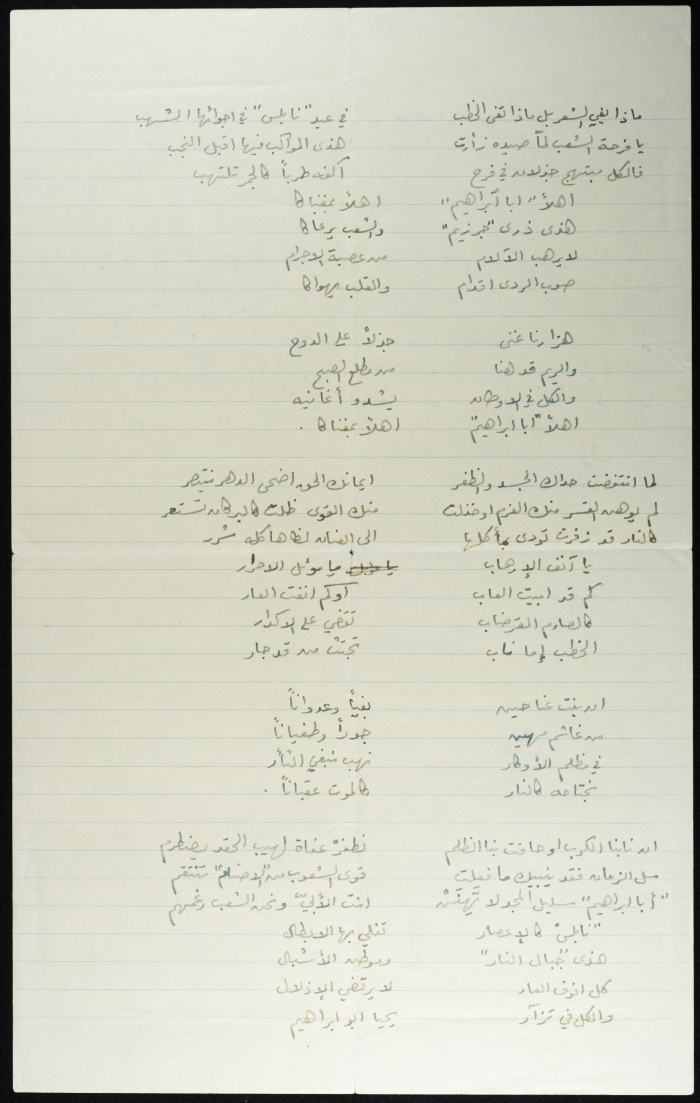 ماذا يفي الشعر بل ماذا تفي الخطب في عيد "نابلس" في اجوائها الشهب
يا فرحة الشعب لمّا صيده زأرت هذي المواكب فيها اقبل النجب
فالكل مبتهج جذلان في فرح أكفه طرباً كالجمر تلتهب
اهلاً "ابا ابراهيم" اهلاً بمغناكا
هذي ذرى "جرزيم" والشعب يرعاكا
لا يرهب الآلام من عصبة الاجرام
صوب الردى اقدام والقلب يهواكا
هزارنا غنى جذلاً على الدوح
والريم قد هنا من مطلع الصبح
والكل في الاوطان يشدو أغانيه
اهلاً "ابا ابراهيم" اهلاً بمغناكا .
لما انتفضت حداك المجد والظفر ايمانك الحق اضحى الدهر ينتصر
لم يوهن القسر منك العزم او خذلت منك القوى ظلت كالبركان تستعر
كالنار قد زفرت تودي بأكلها الى العنان لظاها كله شرر
يا آنف الإرهاب يا موئل الاحرار
كم قد ابيت العاب أوكم انفت العار
كالصارم القرضاب تقضي على الاكدار
الخطب إما ناب تجتث من قد جار
ان بغت بغياً وعدواناً
من غاشم مهين جوراً وطغياناً
في مظلم الأوكار نهب نبغي الثأر
نجتاحه كالنار كالموت عقباناً .
ان نابنا الكرب او حاقت بنا الظلم لهيب الحقد يضطرم
سل الزمان فقد ينبيك ما فعلت قوى الشعوب من "الاصنام" تنتقم
"أبا ابراهيم" سليل المجد لا انت الأبيّ ونحن الشعب
"نابلس" كالإعصار تغلي بها الابطال
هذي "جبال النار" وموطن الأشبال
كل انوف العار لا يرتضي الإذلال
والكل في تزآر يحيا ابو ابراهيم